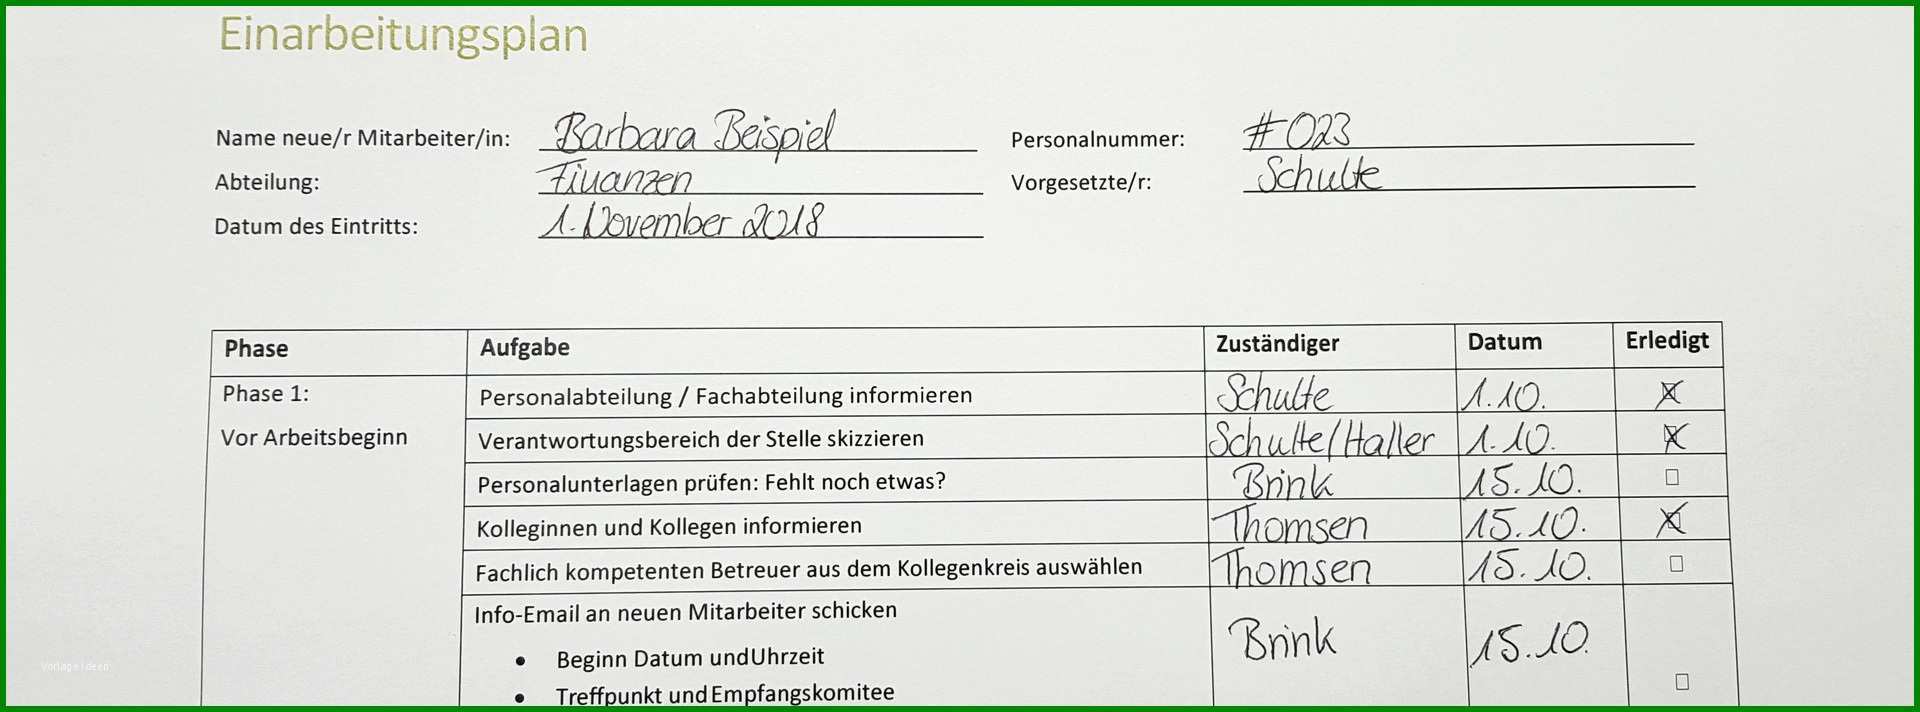 Einarbeitungsplan
Name neue/r Mitarbeiter/in: Barbara Beispiel Personalnummer: #023
Abteilung: Finanzen Vorgesetzte/r: Schulte
Datum des Eintritts: 1. November 2018
Phase Aufgabe Zuständiger Datum Erledigt
Phase 1: Personalabteilung / Fachabteilung informieren Schulte 1.10. ☒
Vor Arbeitsbeginn Verantwortungsbereich der Stelle skizzieren Schulte/Haller 1.10. ☒
Personalunterlagen prüfen: Fehlt noch etwas? Brink 15.10. ☐
Kolleginnen und Kollegen informieren Thomsen 15.10. ☒
Fachlich kompetenten Betreuer aus dem Kollegenkreis auswählen Thomsen 15.10. ☐
Info-Email an neuen Mitarbeiter schicken
Brink 15.10.
• Beginn Datum undUhrzeit
• Treffpunkt und Empfangskomitee ☐
Vorlage Ideen